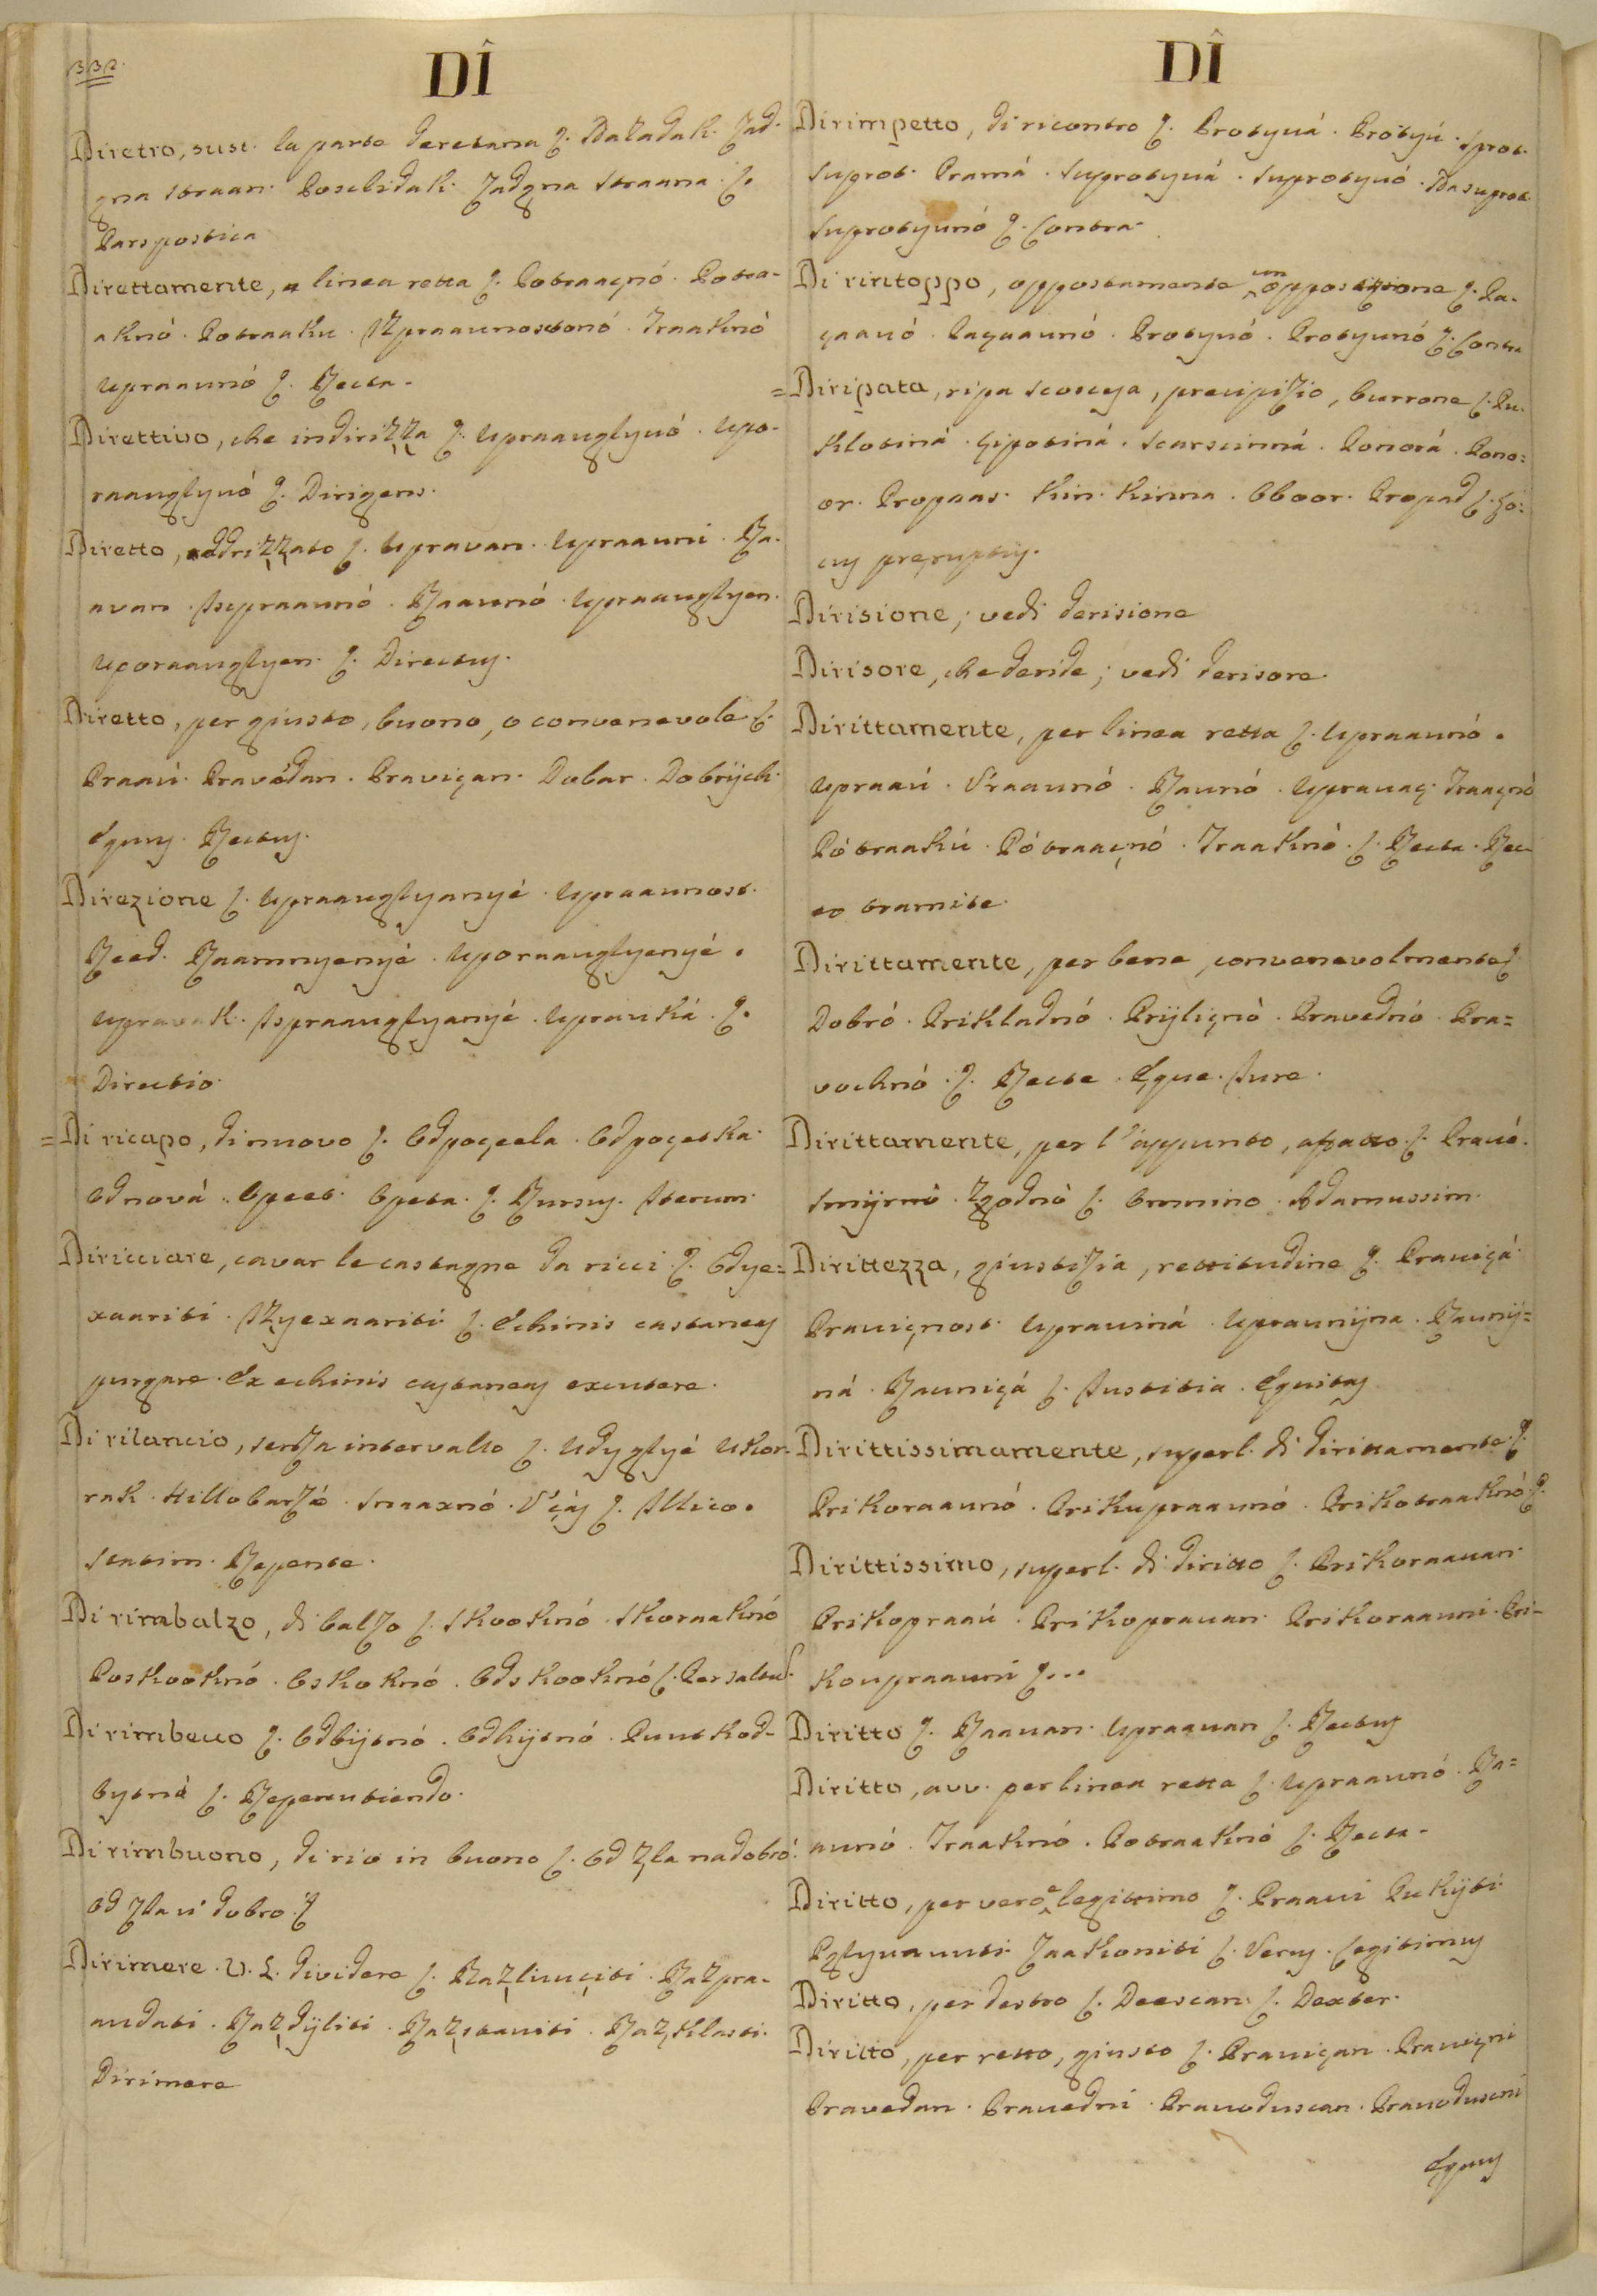 332.
DÎ
Diretro, sust. la parte deretana ʃ. Nazadak. Zad-
gna straan. Poslidak. Zadgna straana. ʃ.
Pars postica
Direttamente, a linea retta ʃ. Potraaçnó. Potra-
aknó. Potraaku. Izpraaunostonó. Traaknó
Upraaunó ʃ. Recta.
Direttivo, che indirizza ʃ. Upraauglyuó. Upo-
raauglyuó ʃ. Dirigens.
Diretto, addrizzato ʃ. Upravan. Upraauni. Ra-
avan. Isupraaunó. Raaunó. Upraauglyen.
Uporaauglyen. ʃ. Directus.
Diretto, per giusto, buono, o convenevole ʃ.
Praaú. Pravédan. Praviçan. Dobar. Dobrijch.
Equus. Rectus.
Direzione ʃ. Upraauglyanyé. Upraaunost.
Reed. Raamnyenyé. Uporaauglyenyé.
Upravak. Ispraauglyanyé. Uprauká. ʃ.
Directio.
= Di ricapo, di nuovo ʃ. Odpoçeela. Odpoçetka.
Odnová. Opeet. Opeta. ʃ. Rursus. Iterum.
Diricciare, cavar le castagne da ricci ʃ. Odye=
xaariti. Izyexaariti ʃ. Echinis castaneas
purgare. Ex echinis castaneas excutere.
Di rilancio, senza intervallo ʃ. Udyglyé Ukor-
rak. Hillobarzó. Smaaxnó. V'çás ʃ. Illico.
Statim. Repente.
Di rimbalzo, di balzo ʃ. Skooknó. Skoraaknó
Poskooknó. Oskoknó. Odskooknó ʃ. Per saltus.
Di rimbecco ʃ. Odbijtnó. Odhijtnó. Puutkod-
bytnó ʃ. Repercutiendo.
Di rimbuono, di rio in buono ʃ. Od zla nadobró.
Od zla ú dobro. ʃ
Dirimere. V. L. dividere ʃ. Razliuuçiti. Razpra-
audati. Razdijliti. Razstaviti. Razklasti.
Dirimere
DÎ
Dirimpetto, di ricontro ʃ. Protyuá. Protyú. Sprot.
Suprot. Pramá. Suprotyuá. Suprotyuó. Nasuprot
Suprotyunó ʃ. Contra.
Di rintoppo, oppostamente, con opposizione ʃ. Pa-
çaauó. Paçaaunó. Protyuó. Protyunó ʃ. Contra
= Diripata, ripa scoscesa, precipizio, burrone ʃ. Pu-
klotiná. Hipotiná. Scarscinná. Ponorá. Pono=
or. Propaas. Kin. Kinna. Oboor. Propad ʃ. Lo=
cus pręruptus.
Dirisione; vedi derisione
Dirisore, che deride; vedi derisore.
Dirittamente, per linea retta ʃ. Upraaunó.
Upraaú. V'raaunó. Raunó. Upravaç. Traaçnó
Pótraakú. Pótraaçnó. Traaknó. ʃ. Recta. Rec-
to tramite.
Dirittamente, per bene, convenevolmente ʃ.
Dobró. Prikladnó. Prijliçnó. Pravednó. Pra=
vochnó. ʃ. Recte. Eque. Iure.
Dirittamente, per l'appunto, affatto. ʃ. Prauó.
Smijrnó. Zgodnó ʃ. Omnino. Adamussim.
Dirittezza, giustizia, rettitudine ʃ. Prauiçá.
Prauiçnost. Uprauiná. Upraunijna. Raunij=
ná. Rauniçá ʃ. Iustitia. Equitas
Dirittissimamente, superl. di dirittamente. ʃ.
Prikoraaunó. Prikupraaunó. Prikotraaknó. ʃ.
Dirittissimo, superl. di diritto ʃ. Prikoraauan.
Prikopraaú. Prikoprauan. Prikoraauni. Pri-
koupraauni ʃ...
Diritto ʃ. Raauan. Upraauan ʃ. Rectus
Diritto, avv. per linea retta ʃ. Upraaunó. Ra=
aunó. Traaknó. Potraaknó ʃ. Recta.
Diritto, per vero e legittimo ʃ. Praaui Pukijti.
Pglyuauuti. Zaakoniti ʃ. Verus. Legitimus
Diritto, per destro ʃ. Deescan. ʃ. Dexter.
Diritto, per retto, giusto ʃ. Prauiçan. Prauiçni
Pravedan. Prauedni. Prauoduscan. Prauoduscni
Equus